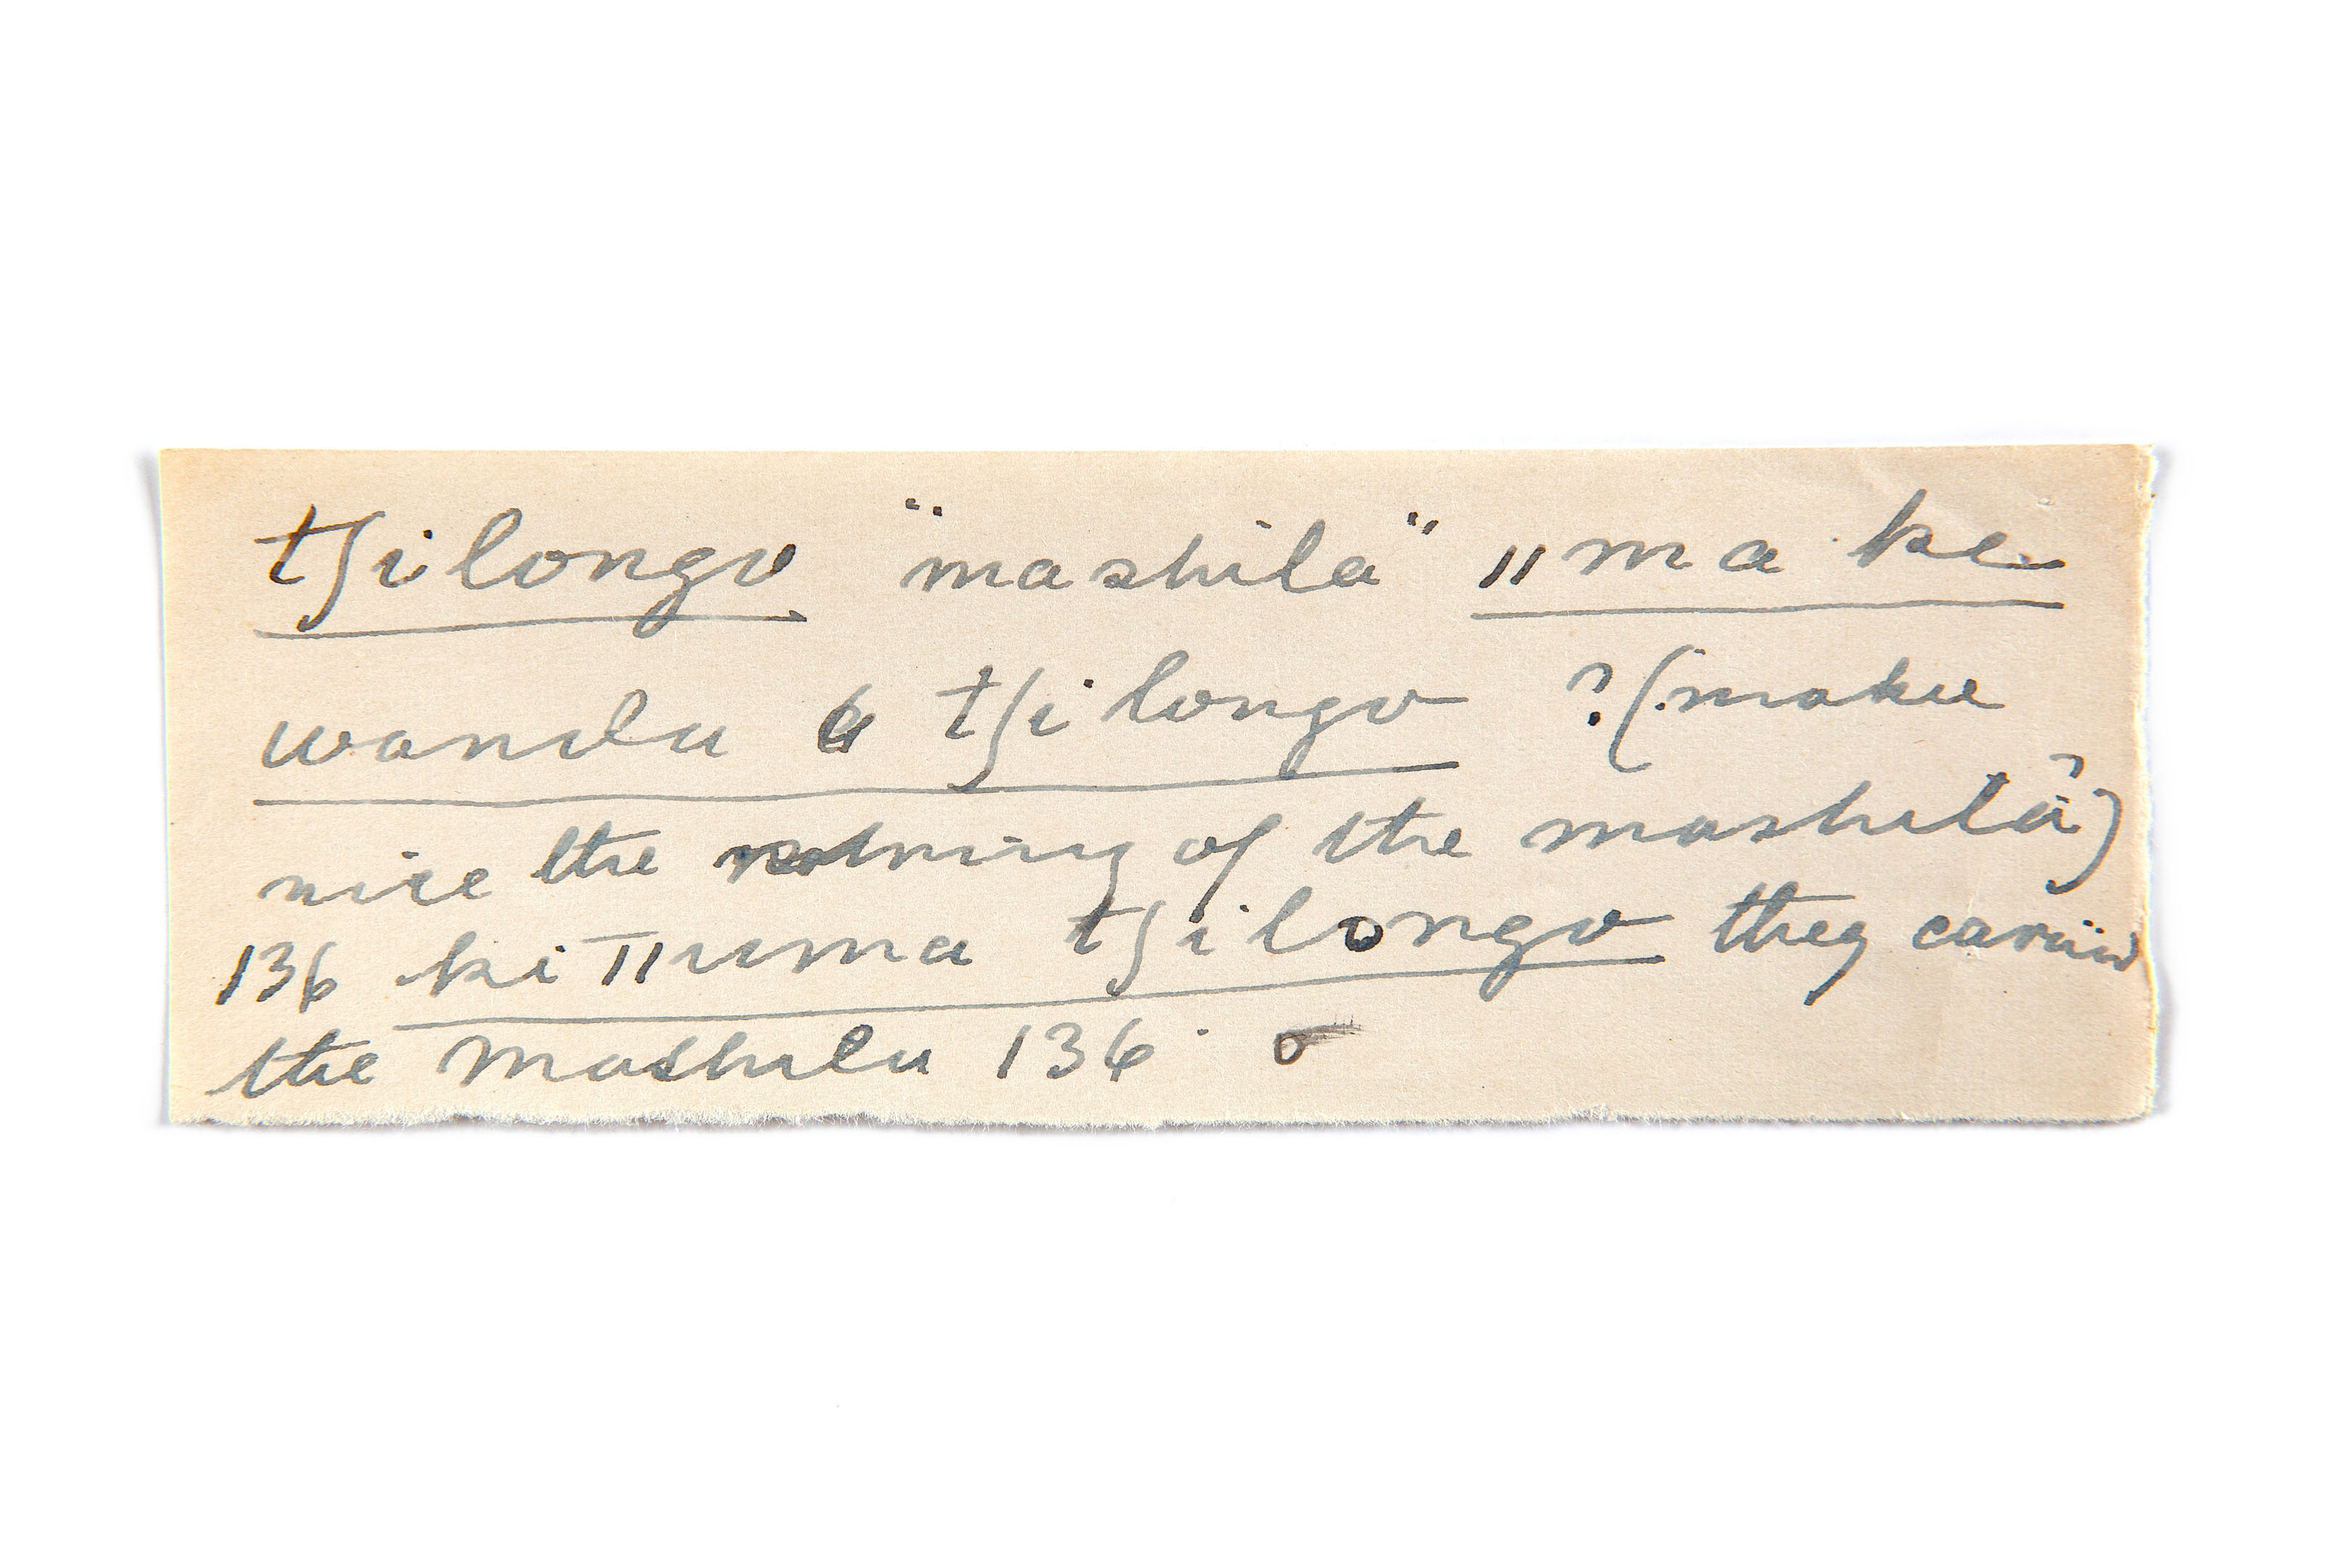 tʃilongo "mashila" ǁma ke
wandu a tʃilongo ?(make
nice the of the mashila?)
136 ki ǁuma tʃilongo they carried
the mashila 136